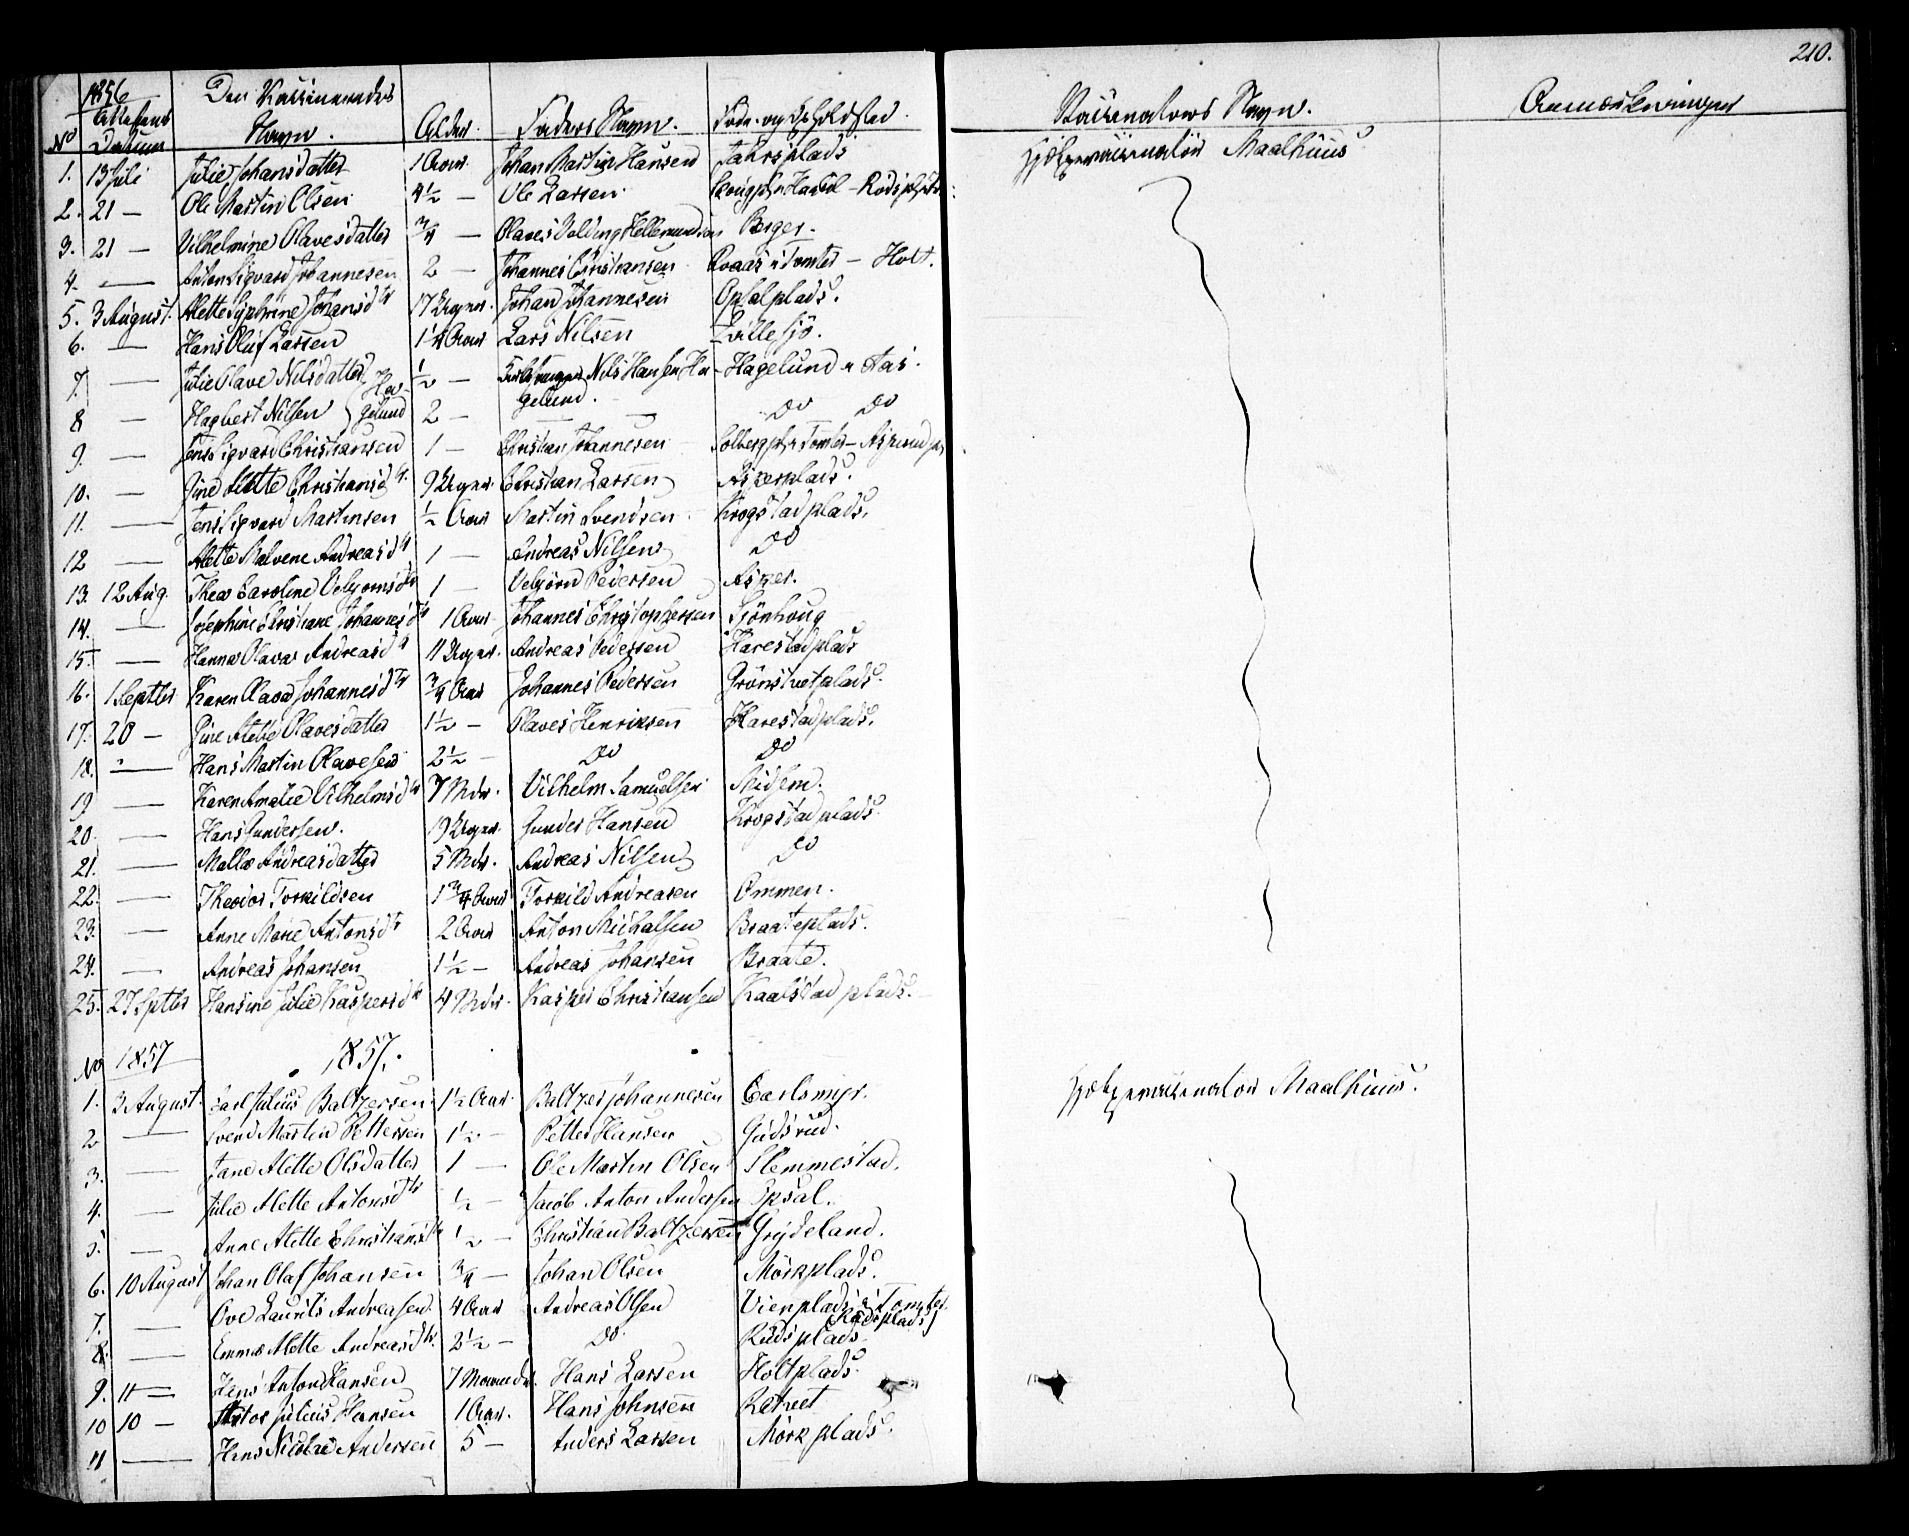 210.
1856
Attestens Datum
No
Den Vaccineredes Navn.
Alder.
Faders Navn.
Føde- og Opholdsted.
Vaccinatørs Navn.
Anmærkninger
1. 13 Juli Julie Johansdatter 1 Aar Johan Martin Hansen plads Hjelpevaccinatør Maalhuus
2. 21 — Ole Martin Olsen 4½ — Ole Larsen
3. 21 — Vilhelmine Olavesdatter ¾ — Olaves Berger.
4. — Anton Sigvard Johannesen 2 — Johannes Christiansen i Tomter — Holt.
5. 3 August. Alette Johansdtr 17 Uger. Johan Johannesen Opsalplads.
6. — Hans Oluf Larsen 1¼ Aar Lars Nilsen Lillesjö.
7. — Julie Olave Nilsdatter ½ — Nils Hansen Ha- Hagelund i Aas.
gelund.
8 — Hagbert Nilsen Hagelund 2 — — Do Do
9. — Jens Sigvard Christiansen 1 — Christian Johannesen Solbergpl. i Tomter —
10. — Gine Alette Christiansdtr. 9 Uger. Christian Larsen Askerplads.
11. — Jens Sigvard Martinsen ½ Aar Martin Svendsen Krogstadplads.
12 — Alette Malvene Andreasdtr 1 — Andreas Nilsen Do
13. 12 Aug. Thea Caroline Vebjørnsdtr 1 — Vebjörn Pedersen Asker.
14. — Josephine Christiane Johannesdtr 1 Aar Johannes Christophersen Sjönhoug
15. — Hanna Olava Andreasdtr 11 Uger. Andreas Pedersen Harestadplads
16. 1 Septbr Karen Olava Johannesdtr ¾ Aar Johannes Pedersen Grönstvetplads.
17. 20 — Gine Alette Olavesdatter 1½ — Olaves Henriksen Harestadplads.
18. — Hans Martin Olavesen 2½ — Do Do
19 — Karen Amalie Vilhelmsdtr 7 Mdr. Vilhelm Samuelsen Skidsem.
20. — Hans Gundersen. 19 Uger. Gunder Hansen Krogstadplads.
21. — Mallæ Andreasdatter 5 Mdr. Andreas Nilsen Do
22. — Theodor Torkildsen 1¾ Aar Torkild Andreasen Ommen.
23. — Anne Marie Antonsdtr 2 Aar Anton Michalsen Braateplads.
24. — Andreas Johansen 1½ — Andreas Johansen Braate.
25. 27 Septbr Hansine Julie Kaspersdtr 4 Mdr. Kasper Christiansen Kaalstadplads.
No 1857 1857.
1. 3 August. Carl Julius Baltzersen 1½ Aar. Baltzer Johannesen Carlsmyr. Hjelpevaccinatør Maalhuus.
2 — Svend Martin Pettersen 1½ — Petter Hansen Gudsrud.
3. — Jane Alette Olsdatter 1 — Ole Martin Olsen Slemmestad.
4. — Julie Alette Antonsdtr ½ — Jacob Anton Andersen Opsal.
5. — Anne Alette Christiansdtr ½ — Christian Baltzersen Grydeland.
6. 10 August Johan Olaf Johansen ¾ — Johan Olsen Mörkplads.
7. — Ove Laurits Andreasen. 4 Aar Andreas Olsen Vienplads i Tomter
(Rudsplads)
8. — Emma Alette Andreasdtr. 2½ — Do. Rudsplads
9. 11 — Hans Anton Hansen 7 Maaneder. Hans Larsen Holtplads.
10 10 — Julius Hansen 1 Aar. Hans Johnsen Retvet
11 — Hans Nicolai Andersen 5 — Anders Larsen Mörkplads.